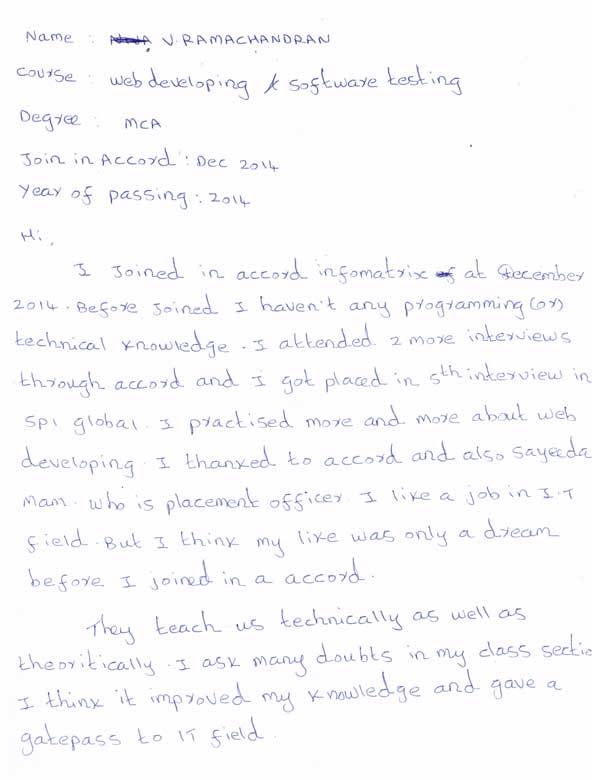 Name : V. RAMACHANDRAN
Course : web developing & software testing
Degree : MCA
Join in Accord : Dec 2014
Year of passing : 2014
Hi,
I Joined in accord infomatrix at December
2014. Before joined I haven't any programming (or)
technical knowledge. I attended 2 more interviews
through accord and I got placed in 5th interview in
SPI global. I practised more and more about web
developing. I thanked to accord and also Sayeeda
Mam. who is placement officer. I like a job in I.T
field. But I think my like was only a dream
before I joined in a accord.
They teach us technically as well as
theoritically. I ask many doubts in my class sectio
I think it improved my knowledge and gave a
gatepass to IT field.